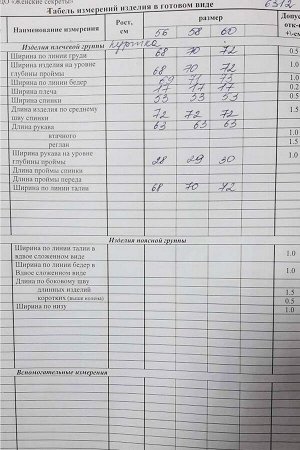 ЦО «Женские секреты» 6312
Табель измерений изделия в готовом виде
Наименование измерения Рост, см размер Допуск
56 58 60 +/-см
Изделия плечевой группы куртка
Ширина по линии груди 68 70 72 0.5
Ширина изделия на уровне
глубины проймы 68 70 72 1.0
Ширина по линии бедер 69 71 73 1.0
Ширина плеча 17 17 17 0.2
Ширина спинки 53 53 53 0.5
Длина изделия по среднему
шву спинки 72 72 72 1.5
Длина рукава 63 63 63
втачного 1.0
реглан 1.5
Ширина рукава на уровне
глубины проймы 28 29 30 1.0
Длина проймы спинки
Длина проймы переда
Ширина по линии талии 68 70 72
Изделия поясной группы
Ширина по линии талии в
вдвое сложенном виде 1.0
Ширина по линии бедер в
Вдвое сложенном виде 1.0
Длина по боковому шву
длинных изделий 1.5
коротких (выше колена) 0.5
Ширина по низу 1.0
Вспомогательные измерения